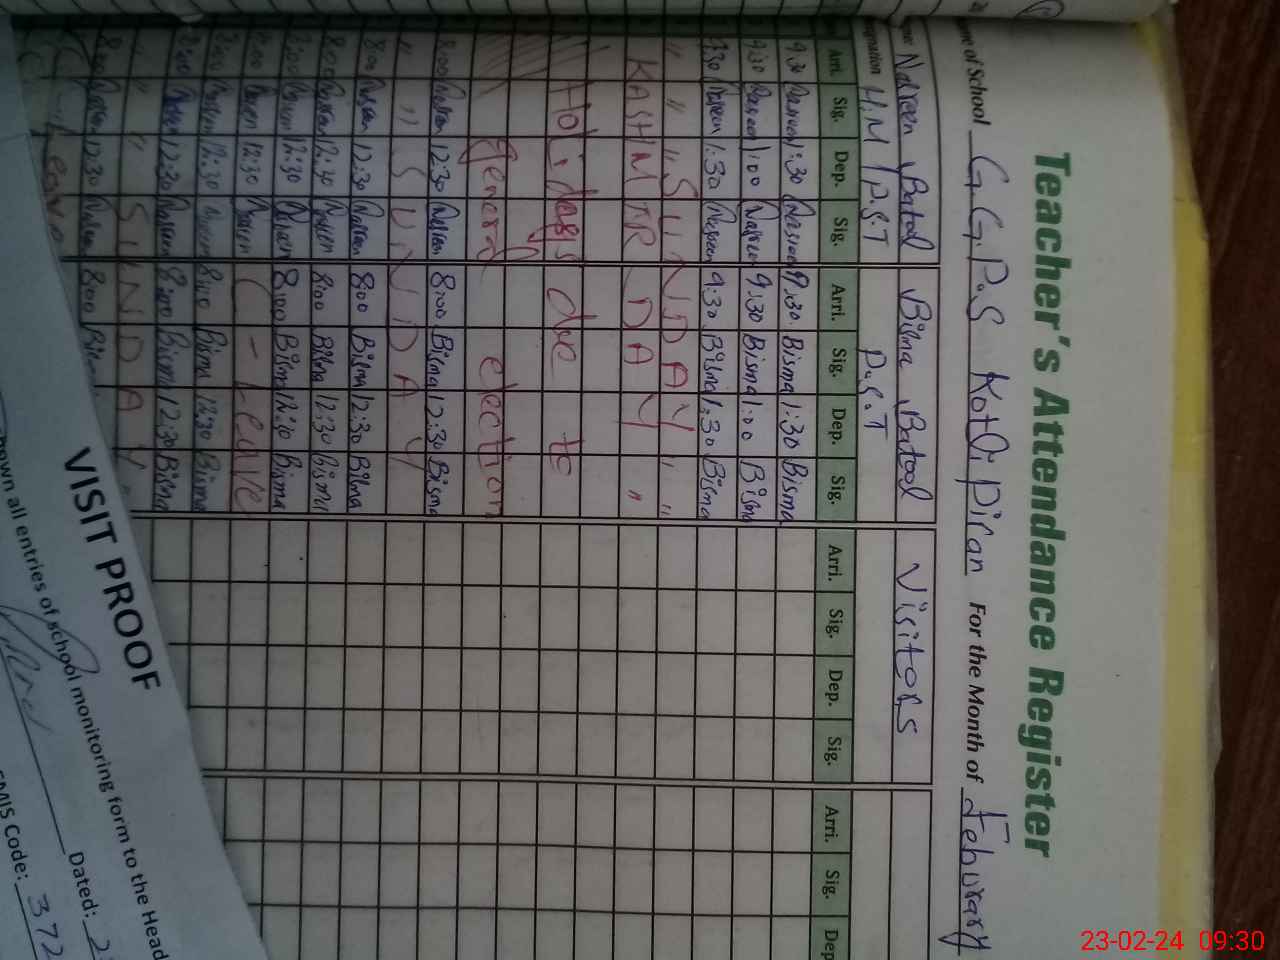 Teacher's Attendance Register
me of School G.G.P.S Kotli Piran For the Month of Feburary
Nasreen Batool Bisma Batool Visitors
gnation H.M P.S.T P.S.T
Arri. Sig. Dep. Sig. Arri. Sig. Dep. Sig. Arri. Sig. Dep. Sig. Arri. Sig. Dep
9:30 Nasreen 1:30 Nasreen 9:30 Bisma 1:30 Bisma
9:30 Nasreen 1:00 Nasreen 9:30 Bisma 1:00 Bisma
9:30 Nasreen 1:30 Nasreen 9:30 Bisma 1:30 Bisma
" " " SUNDAY " "
KASHMIR DAY "
Holidays due to
general election
8:00 Nasreen 12:30 Nasreen 8:00 Bisma 12:30 Bisma
" " SUNDAY
8:00 Nasreen 12:30 Nasreen 8:00 Bisma 12:30 Bisma
8:00 Nasreen 12:30 Nasreen 8:00 Bisma 12:30 Bisma
8:00 Nasreen 12:30 Nasreen 8:00 Bisma 12:30 Bisma
8:00 Nasreen 12:30 Nasreen Leave
8:00 Nasreen 12:30 Nasreen 8:00 Bisma 12:30 Bisma
8:00 Nasreen 12:30 Nasreen 8:00 Bisma 12:30 Bisma
" " SUNDAY
8:00 Nasreen 12:30 Nasreen 8:00 Bisma
Leave
VISIT PROOF
hown all entries of school monitoring form to the Head
Dated: 2
EMIS Code: 372
23-02-24 09:30